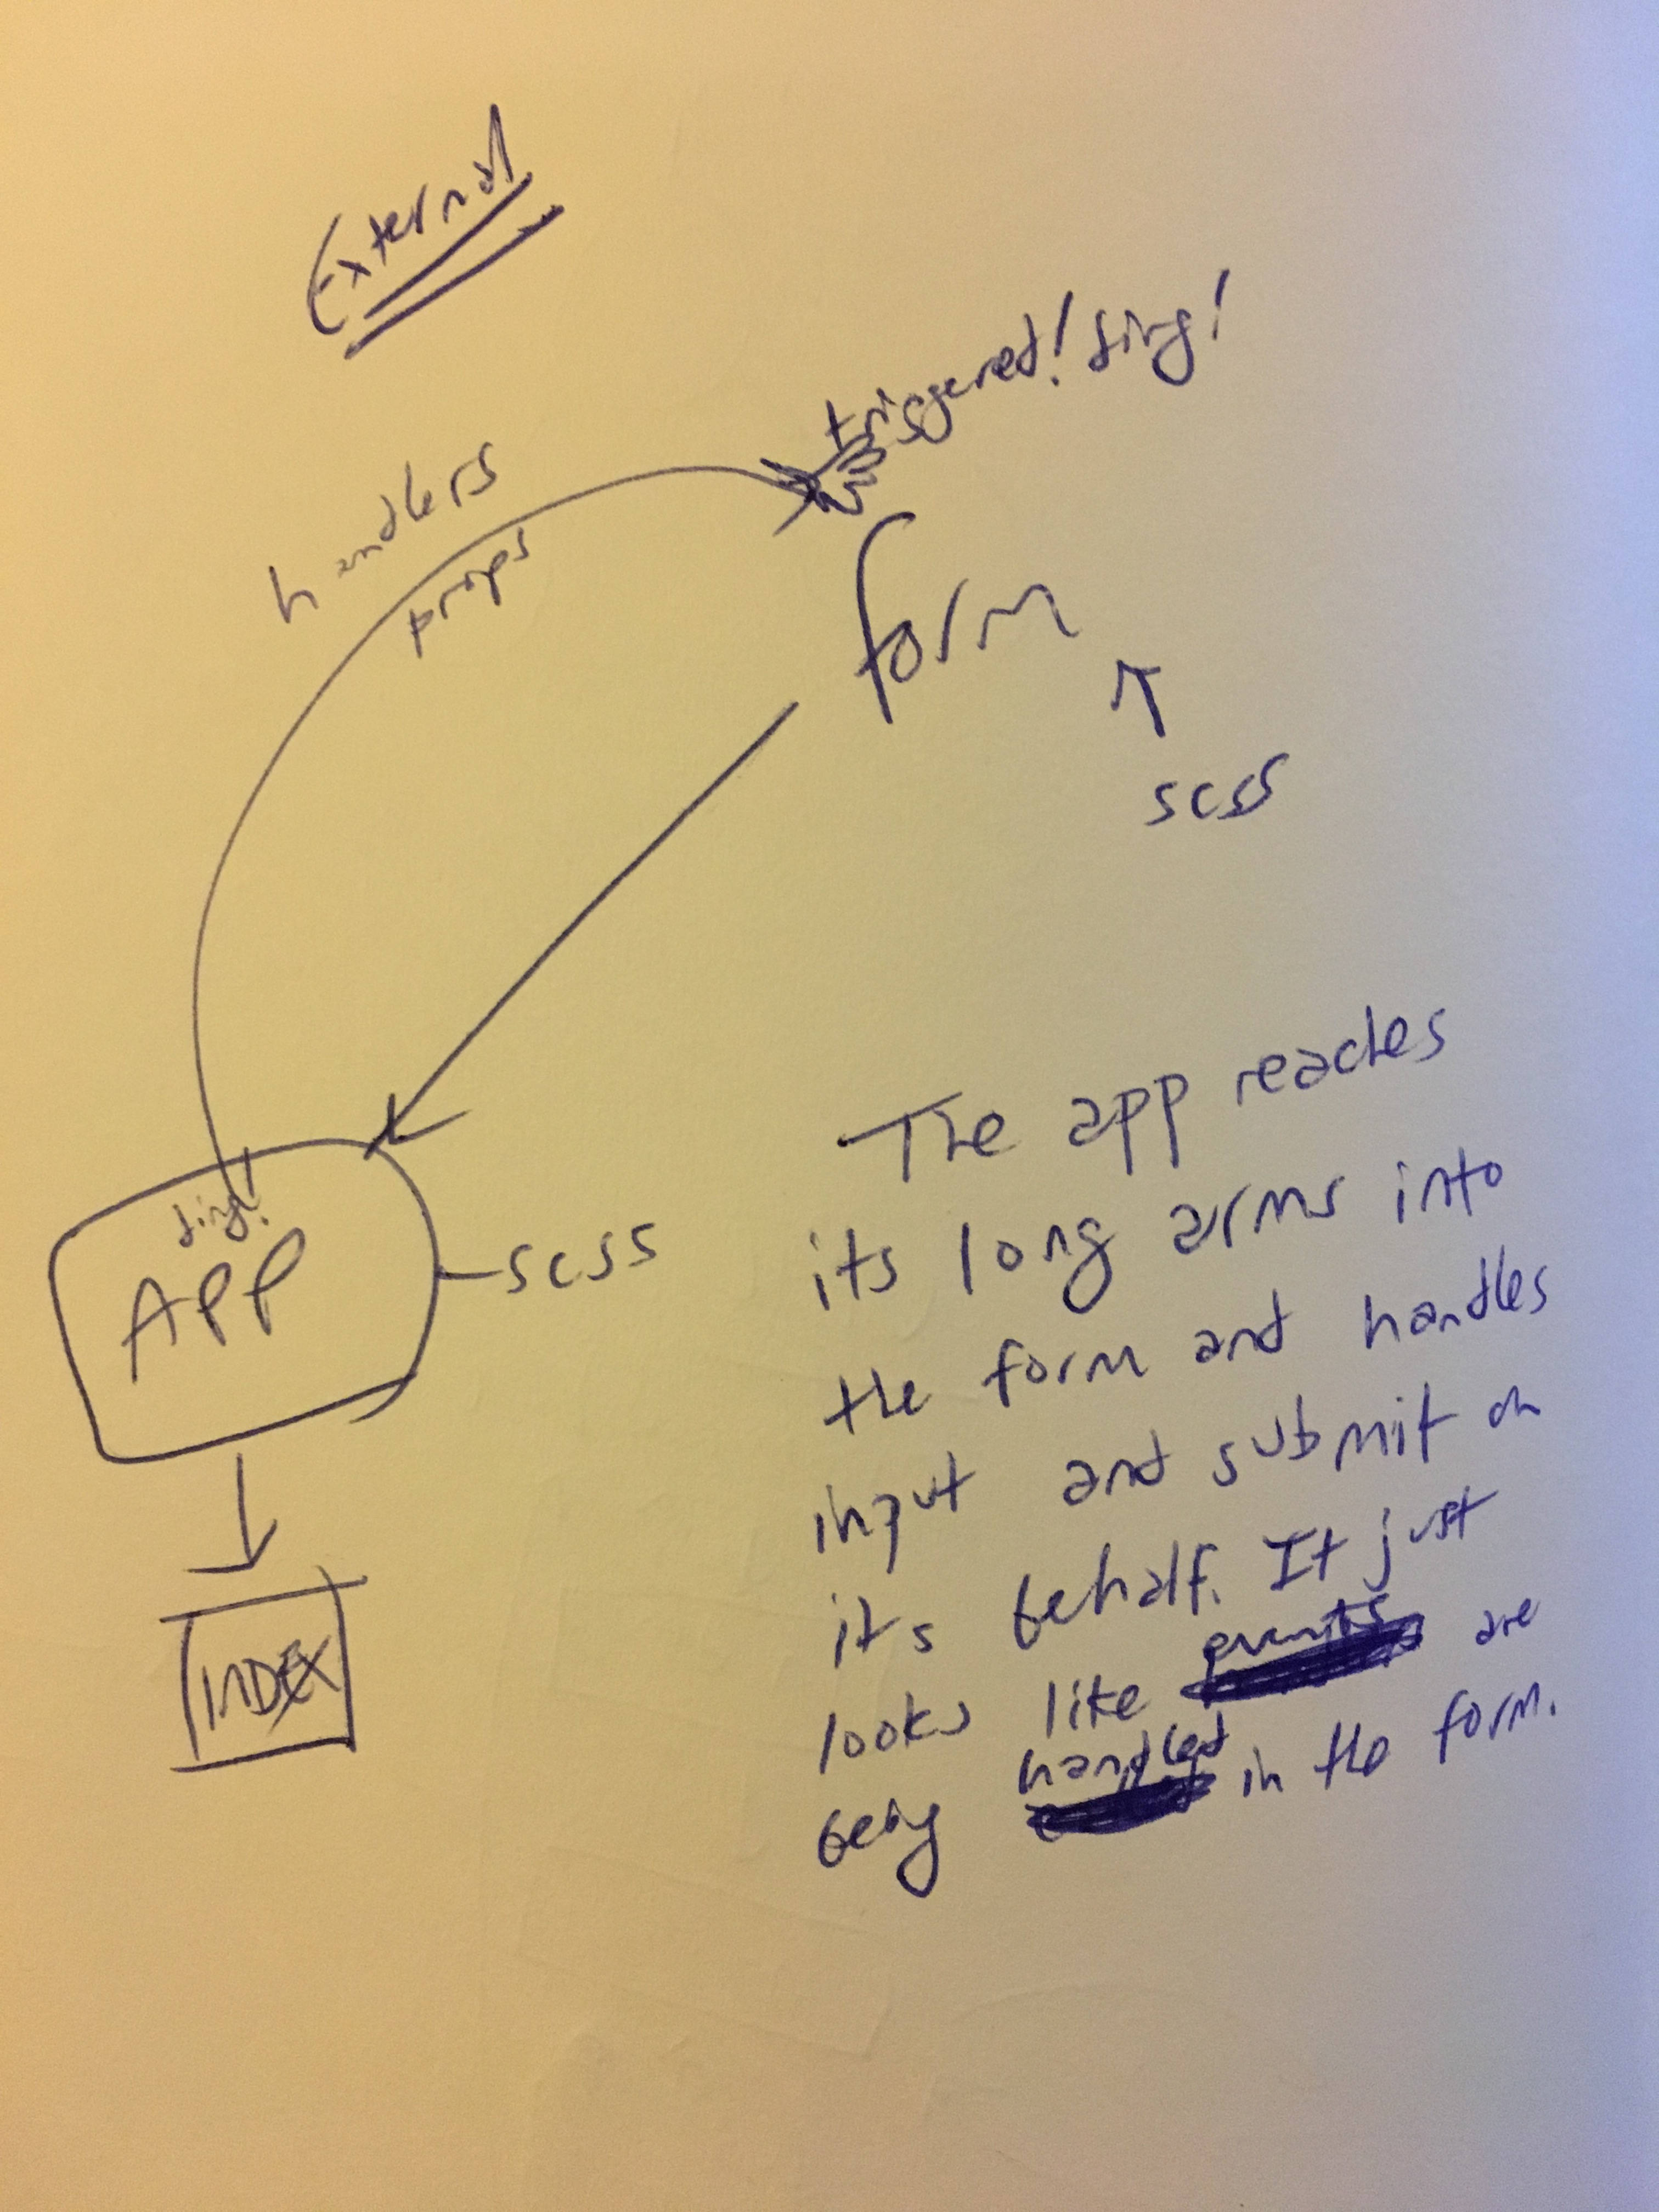 External
triggered! ding!
handlers
props
form
scss
ding!
APP
scss
INDEX
The app reaches
its long arms into
the form and handles
input and submit on
its behalf. It just
looks like events are
being handled in the form.